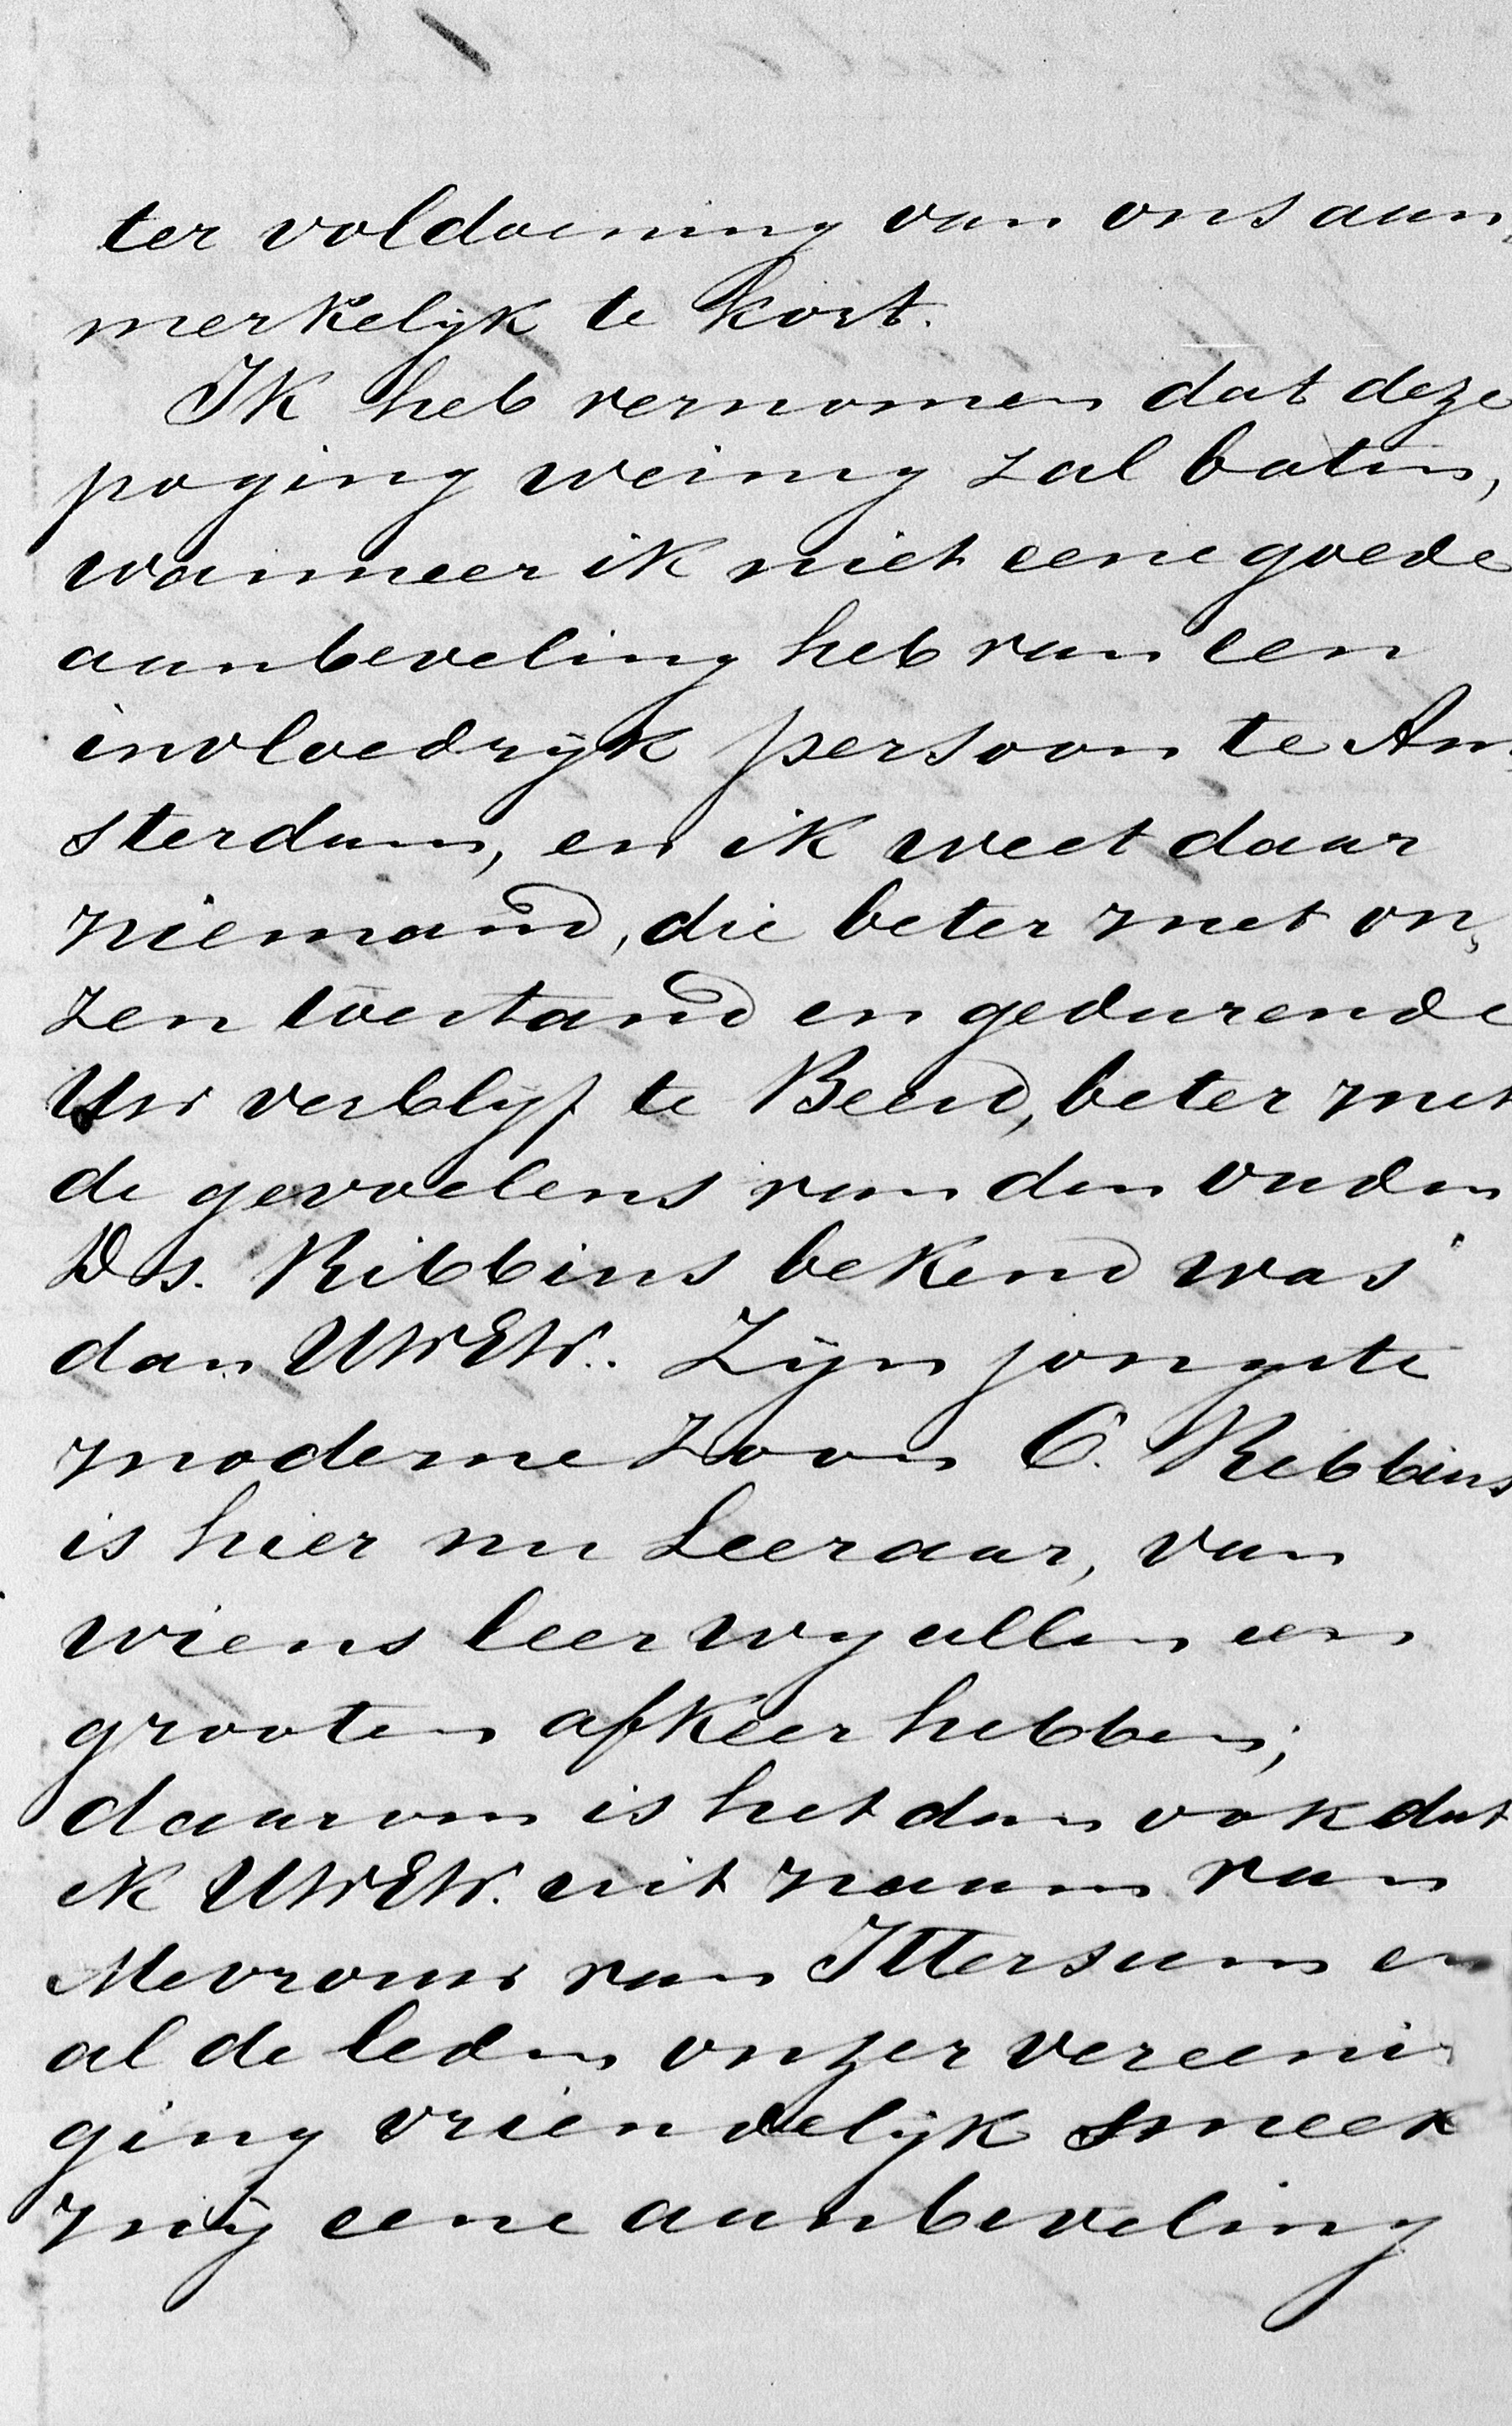 ter voldoening van ons aan„
merkelijk te kort.
Ik heb vernomen dat deze
poging weinig zal baten,
wanneer ik niet eene goede
aanbeveling heb van een
invloedrijk persoon te Am
sterdam, en ik weet daar
niemand, die beter met on„
zen toestand en gedurende
Uw verblijf te Beesd, beter met
de gevoelens van den ouden
Ds. Ribbius bekend was
dan UWEW.. Zijn jongste
moderne zoon C. Ribbius
is hier nu Leeraar, van
wiens leer wij allen een
grooten afkeer hebben;
daarom is het dan ook dat
ik UWEW. uit naam van
Mevrouw van Ittersum en
al de leden onzer vereeni
ging vriendelijk smeek
mij eene aanbeveling